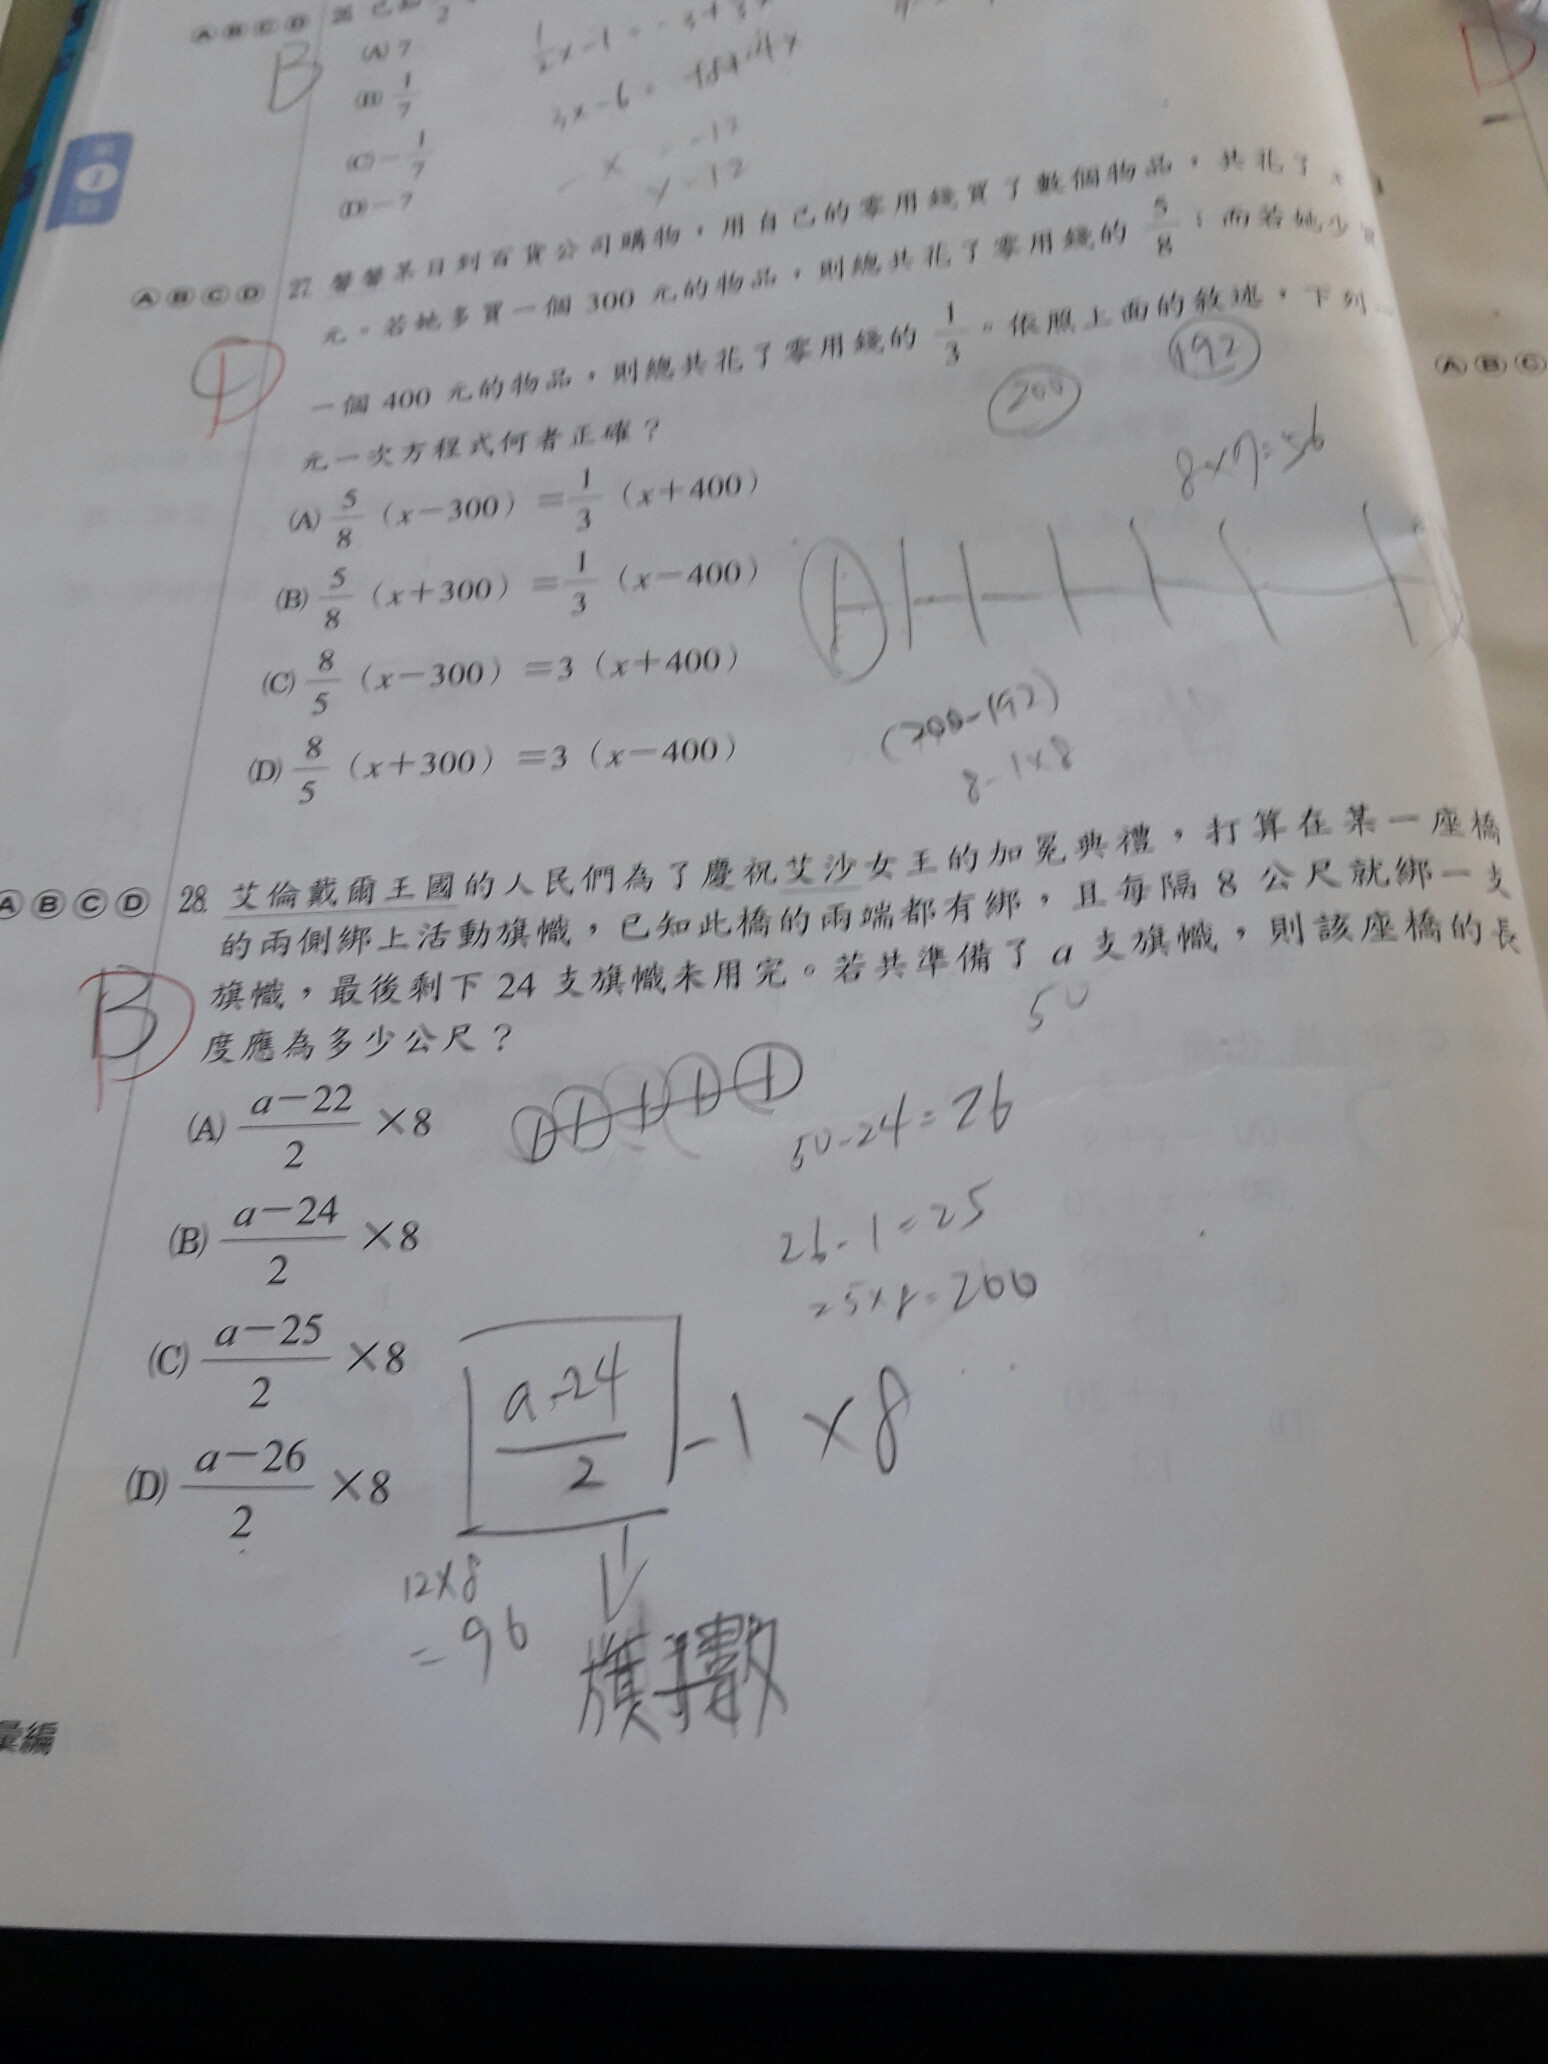 Ⓐ Ⓑ Ⓒ Ⓓ 26. 已知
(A) 7
(B) 1/7
(C) －1/7
(D) －7
B
1/2x－1＝－3＋3
3x－6＝
x ＝－12
第1回
Ⓐ Ⓑ Ⓒ Ⓓ 27. 馨馨某日到百貨公司購物，用自己的零用錢買了數個物品，共花了 x
元。若她多買一個 300 元的物品，則總共花了零用錢的 5/8；而若她少買
一個 400 元的物品，則總共花了零用錢的 1/3。依照上面的敘述，下列一
元一次方程式何者正確？
D
200
192
8×7=56
(A) 5/8（x－300）＝1/3（x＋400）
(B) 5/8（x＋300）＝1/3（x－400）
(C) 8/5（x－300）＝3（x＋400）
(D) 8/5（x＋300）＝3（x－400）
(200-192)
8-1×8
Ⓐ Ⓑ Ⓒ
Ⓐ Ⓑ Ⓒ Ⓓ 28. 艾倫戴爾王國的人民們為了慶祝艾沙女王的加冕典禮，打算在某一座橋
的兩側綁上活動旗幟，已知此橋的兩端都有綁，且每隔 8 公尺就綁一支
旗幟，最後剩下 24 支旗幟未用完。若共準備了 a 支旗幟，則該座橋的長
度應為多少公尺？
B
D
50
(A) a－22/2 ×8
(B) a－24/2 ×8
(C) a－25/2 ×8
(D) a－26/2 ×8
50-24=26
26-1=25
25×8=200
a-24/2 -1 ×8
12×8
=96
旗手數
彙編